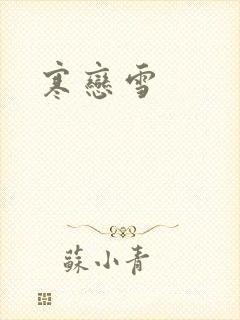 寒戀雪
蘇小青